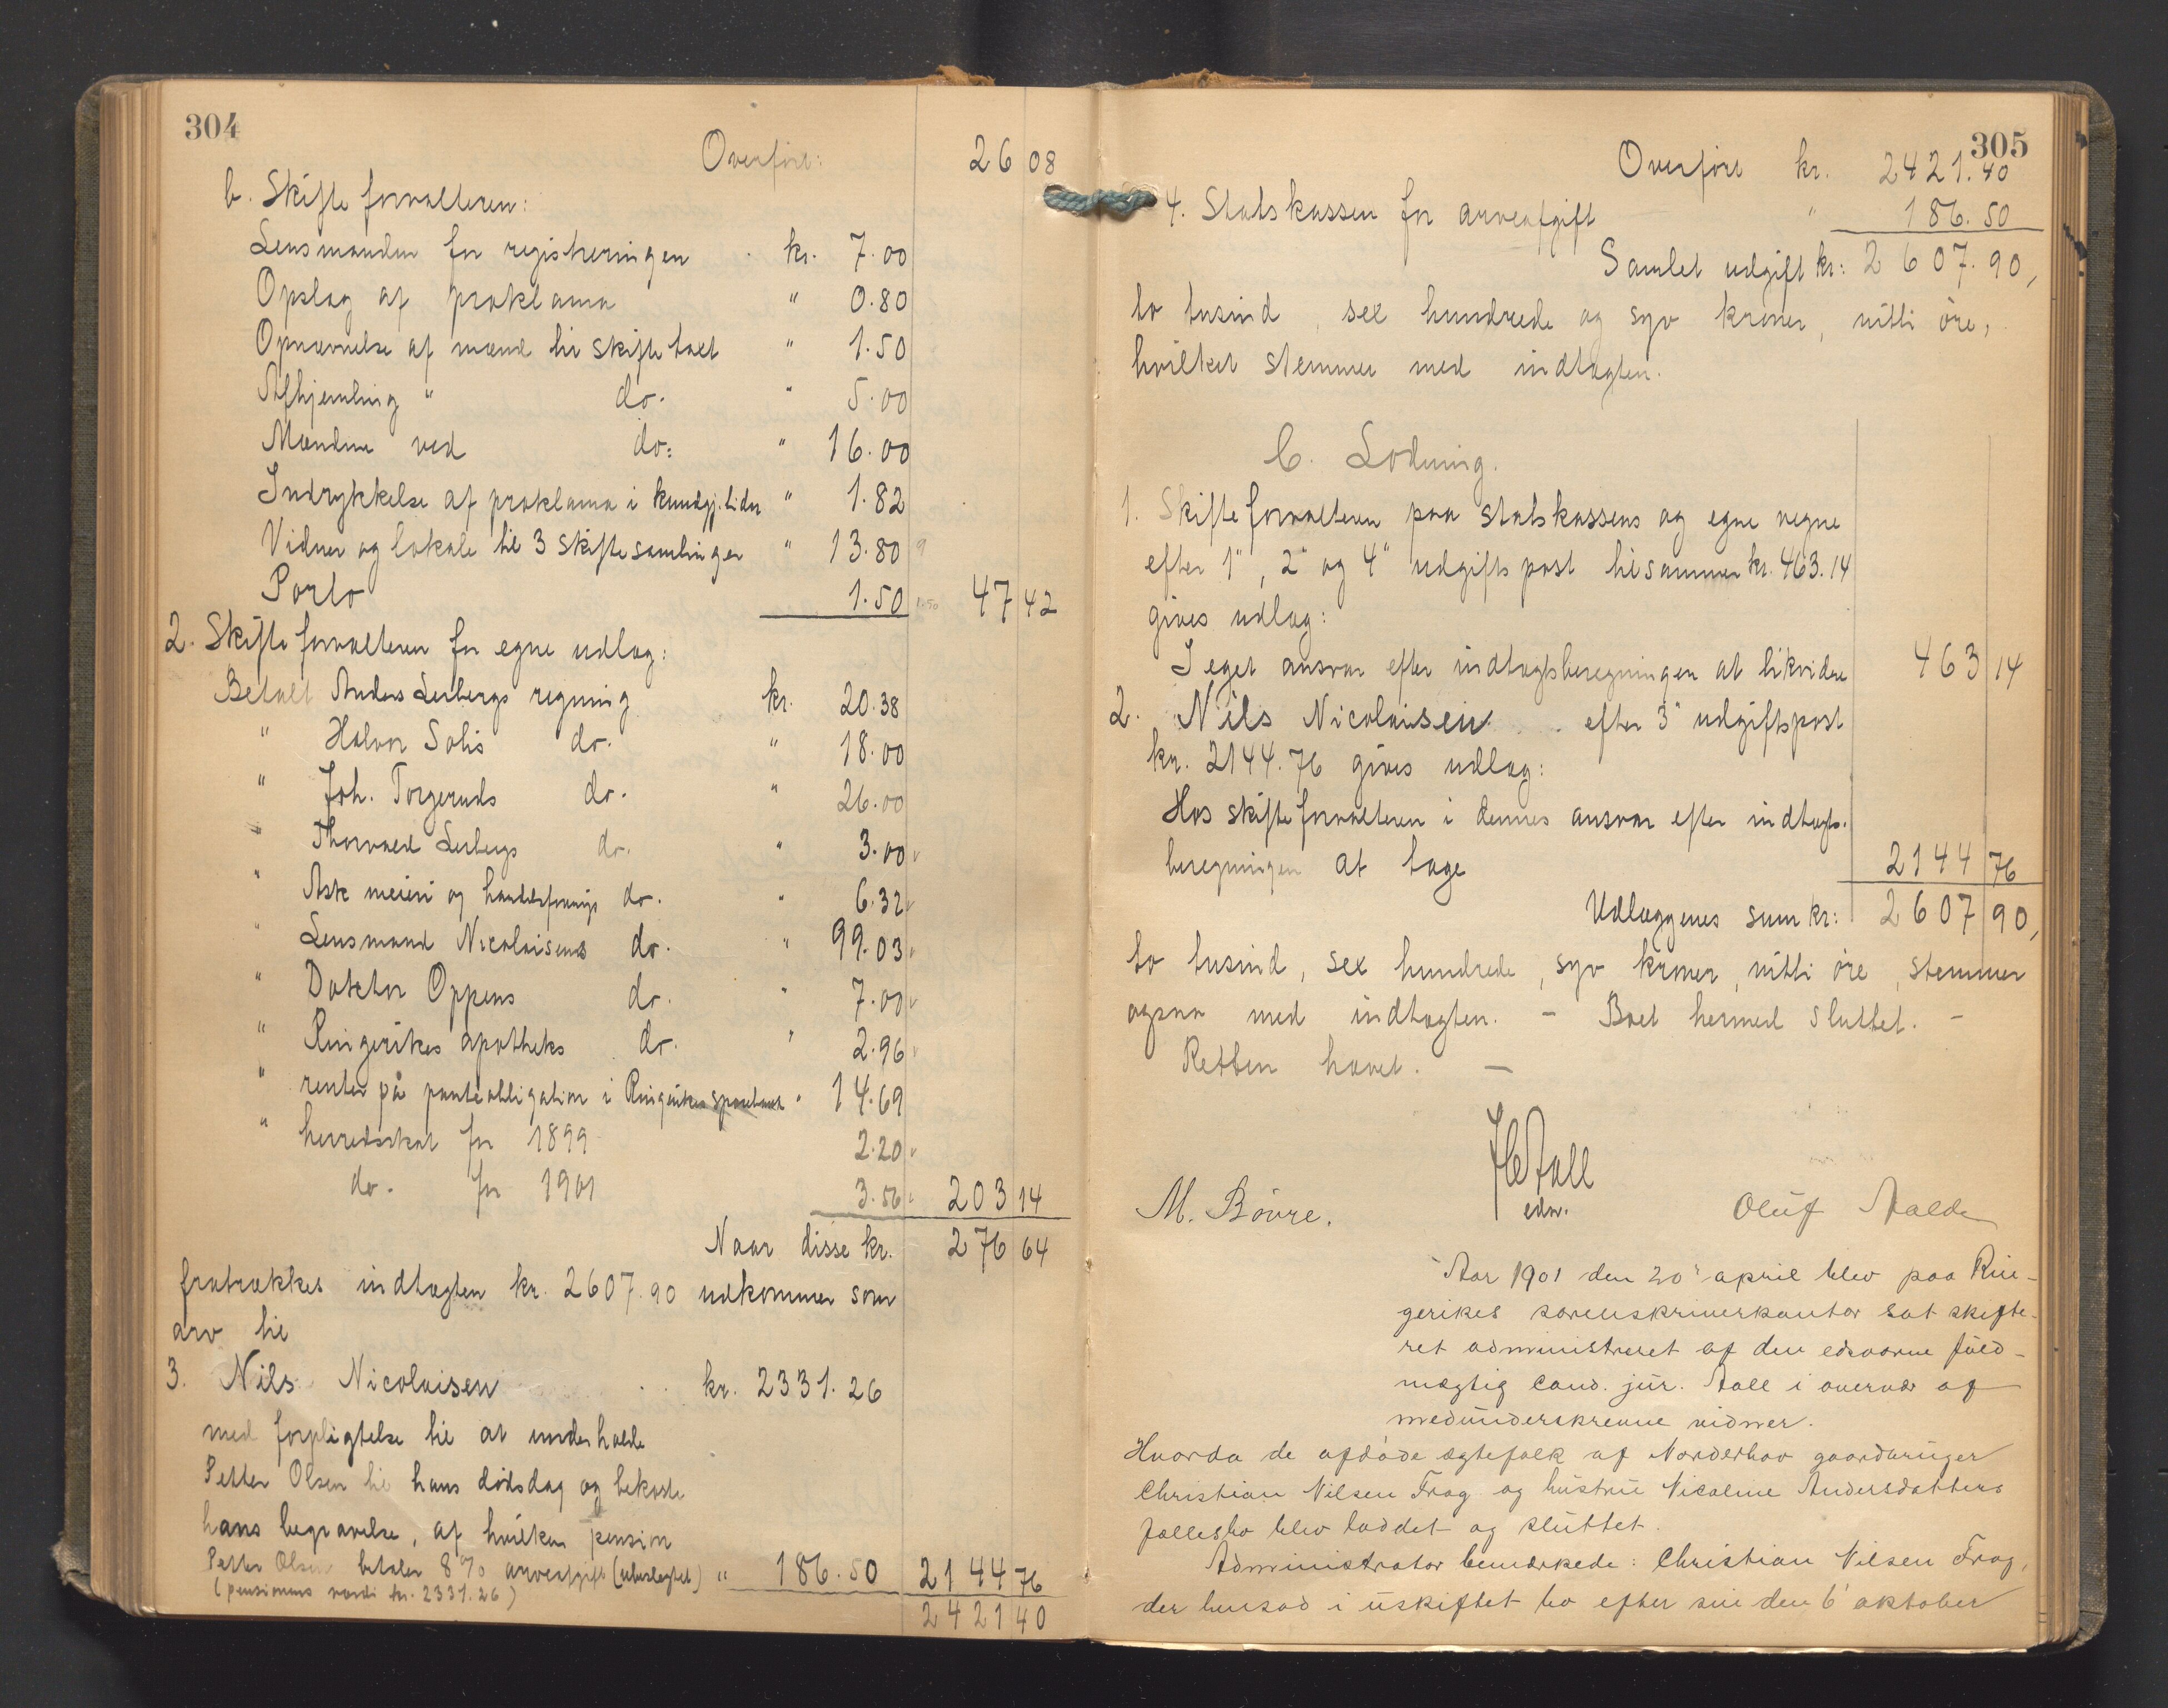 304
Overført: 26 08
b. Skifteforvalteren:
Lensmanden for registreringen kr. 7.00
Opslag af proklama " 0.80
Opnævnelse af mænd til skiftetakt " 1.50
Afhjemling " do. " 5.00
Mændene ved do: " 16.00
Indrykkelse af proklama i kundgj. tider " 1.82
Vidner og lokale til 3 skiftesamlinger " 13.80
Porto 1.50 47 42
2. Skifteforvalteren for egne udlæg:
Betalt Anders Lerbergs regning kr. 20.38
" Halvor Solis do. " 18.00
" Joh. Torgeruds do. " 26.00
" Thorvald Lerbergs do. " 3.00
" Ask meieri og handelsforenings do. " 6.32
" Lensmand Nicolaisens do. " 99.03
" Doktor Oppens do. " 7.00
" Ringerikes apotheks do. " 2.96
" renter på panteobligation i Ringerikes sparebank " 14.69
" herredsskat for 1899 2.20
do. for 1901 3.56 203 14
Naar disse kr. 276 64
fratrækkes indtægten kr. 2607.90 udkommer som
arv til
3. Nils Nicolaisen kr. 2331.26
med forpligtelse til at underholde
Petter Olsen til hans dødsdag og bekoste
hans begravelse, af hvilken pension
Petter Olsen betaler 8% arveafgift (ubeslægtet) " 186.50 2144 76
(pensionens værdi kr. 2331.26)
2421 40
305
Overført kr. 2421.40
4. Statskassen for arveafgift " 186.50
Samlet udgift kr: 2607.90,
to tusind, sex hundrede og syv kroner, nitti øre,
hvilket stemmer med indtægten.
C. Lodning.
1. Skifteforvalteren paa statskassens og egne vegne
efter 1", 2" og 4" udgiftspost tilsammen kr. 463.14
gives udlæg:
I eget ansvar efter indtægtsberegningen at likvidere 463 14
2. Nils Nicolaisen efter 3" udgiftspost
kr. 2144.76 gives udlæg:
Hos skifteforvalteren i dennes ansvar efter indtægts-
beregningen at tage 2144 76
Udlæggenes sum kr: 2607 90,
to tusind, sex hundrede, syv kroner, nitti øre, stemmer
ogsaa med indtægten. – Boet hermed sluttet. –
Retten hævet. –
Aall
edsv.
M. Bøvre.
Oluf Aalde
Aar 1901 den 20' april blev paa Rin-
gerikes sorenskriverkontor sat skifte-
ret administreret af den edsvorne fuld-
mægtig Cand. jur. Aall i overvær af
medunderskrevne vidner.
Hvorda de afdøde ægtefolk af Norderhov gaardbruger
Christian Nilsen Frog og hustru Nicoline Andersdatters
fællesbo blev loddet og sluttet.
Administrator bemærkede: Christian Nilsen Frog,
der hensad i uskiftet bo efter sin den 6' oktober